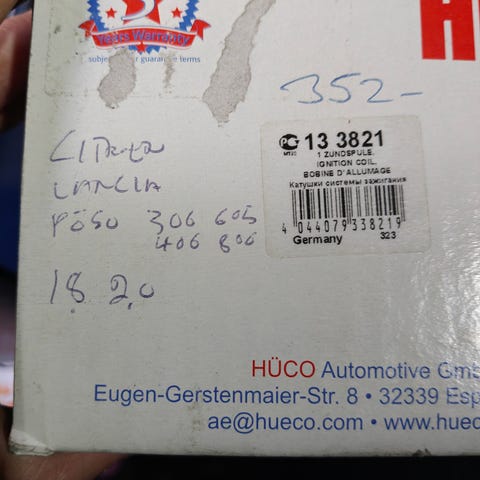 3
Years Warranty
subject our guarantee terms
H
352-
CITROEN
LANCIA
PÖSÖ 306 605
406 806
18 2,0
PG
MT20
13 3821
1 ZÜNDSPULE.
IGNITION COIL.
BOBINE D'ALLUMAGE
Катушки системы зажигания
4 044079 338219
Germany 323
HÜCO Automotive Gm
Eugen-Gerstenmaier-Str. 8 • 32339 Esp
ae@hueco.com • www.huec